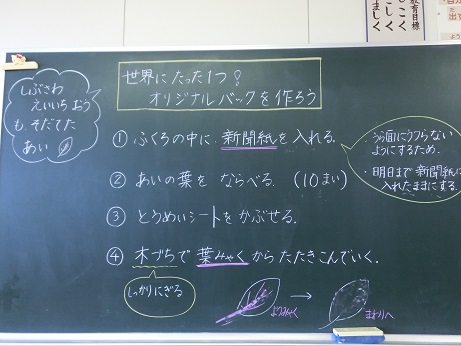 世界にたった1つ!
オリジナルバックを作ろう
しぶさわ
えいいちおう
も、そだてた
あい
① ふくろの中に新聞紙を入れる。
うら面にうつらない
ようにするため。
・明日まで新聞紙は
入れたままにする。
② あいの葉を ならべる。(10まい)
③ とうめいシートをかぶせる。
④ 木づちで葉みゃくからたたきこんでいく。
しっかりにぎる
ようみゃく
→
まわりへ
教育目標